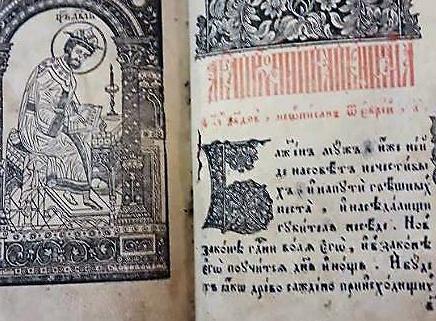 дв҃довъ · неѡписанъ ѿ еврѣи · а҃
Блаженъ мꙋжъ иже неи
де насовѣтъ нечестивы
хъ · и напꙋти грѣшныхъ
неста · и наседалищи
гꙋбитель неседе · Но в
законе гд҃ни волѧ его · и в законе
его поꙋчитсѧ дн҃ь и нощь · И бꙋде
тъ ꙗко древо саждено при исходищих